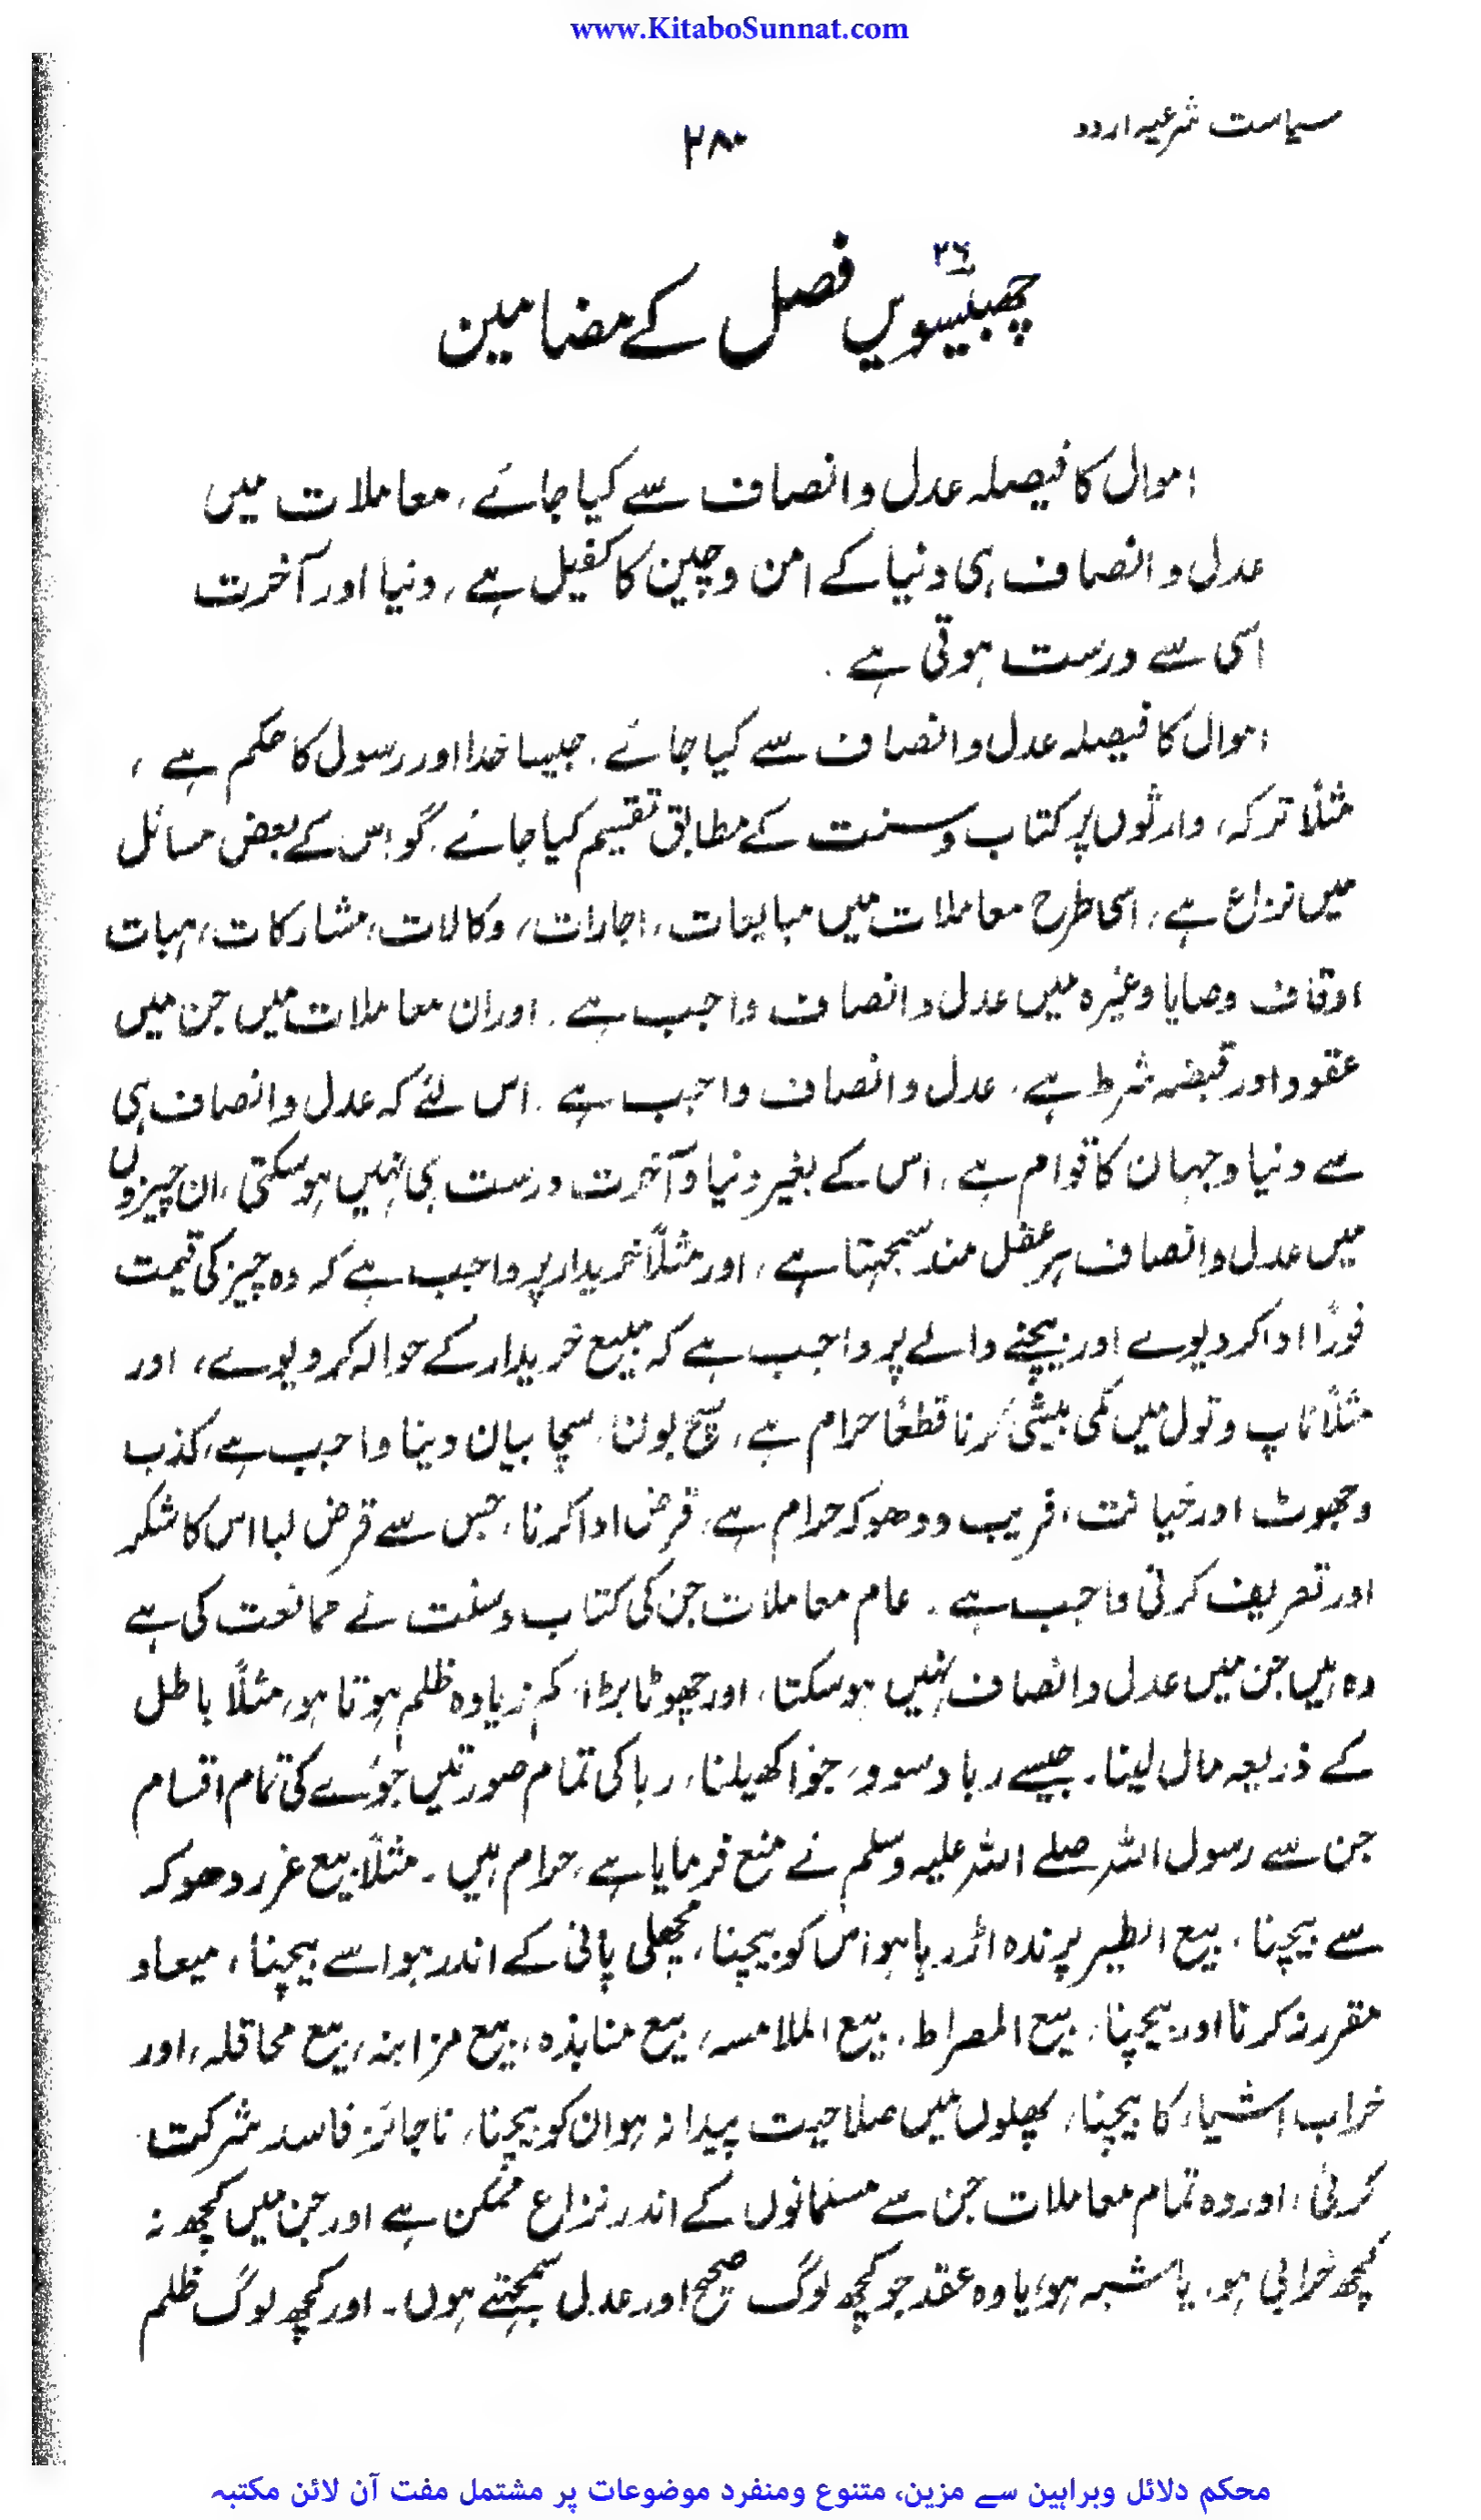 www.KitaboSunnat.com
سیاست شرعیہ اردو
۲۸۰
۲۶
چھبیسویں فصل کے مضامین
اموال کا فیصلہ عدل وانصاف سے کیا جائے، معاملات میں
عدل و انصاف ہی دنیا کے امن وچین کا کفیل ہے، دنیا اور آخرت
اسی سے درست ہوتی ہے۔
اموال کا فیصلہ عدل وانصاف سے کیا جائے۔ جیسا خدا اور رسول کا حکم ہے،
مثلاً ترکہ، وارثوں پر کتاب وسنت کے مطابق تقسیم کیا جائے۔ گو اس کے بعض مسائل
میں نزاع ہے، اسی طرح معاملات میں مبایعات، اجارات، وکالات، مشارکات، ہبات
اوقاف وصایا وغیرہ میں عدل وانصاف واجب ہے۔ اور ان معاملات میں جن میں
عقود اور قبضہ شرط ہے، عدل وانصاف واجب ہے۔ اس لئے کہ عدل وانصاف ہی
سے دنیا وجہان کا قوام ہے، اس کے بغیر دنیا وآخرت درست ہی نہیں ہوسکتی، ان چیزوں
میں عدل وانصاف ہر عقل مند سمجھتا ہے، اور مثلاً خریدار پر واجب ہے کہ وہ چیز کی قیمت
فوراً ادا کر دیوے اور بیچنے والے پر واجب ہے کہ مبیع خریدار کے حوالہ کر دیوے، اور
مثلاً ناپ وتول میں کمی بیشی کرنا قطعاً حرام ہے، سچ بولنا، سچا بیان دینا واجب ہے، کذب
وجھوٹ اور خیانت، فریب ودھوکہ حرام ہے، قرض ادا کرنا، جس سے قرض لیا اس کا شکر
اور تعریف کرنی واجب ہے۔ عام معاملات جن کی کتاب وسنت نے ممانعت کی ہے
وہ ہیں جن میں عدل وانصاف نہیں ہوسکتا، اور چھوٹا بڑا، کم زیادہ ظلم ہوتا ہو، مثلاً باطل
کے ذریعہ مال لینا۔ جیسے ربا وسود، جوا کھیلنا، ربا کی تمام صورتیں جوئے کی تمام اقسام
جن سے رسول اللہ صلے اللہ علیہ وسلم نے منع فرمایا ہے، حرام ہیں۔ مثلاً بیع غرر دھوکہ
سے بیچنا، بیع الطیر پرندہ اڑ رہا ہو اس کو بیچنا، مچھلی پانی کے اندر ہو اسے بیچنا، میعاد
مقرر نہ کرنا اور بیچنا، بیع المصراط، بیع الملامسہ، بیع منابذہ، بیع مزابنہ، بیع محاقلہ، اور
خراب اشیاء کا بیچنا، پھلوں میں صلاحیت پیدا نہ ہو ان کو بیچنا، ناجائز فاسد شرکت
کرنی، اور وہ تمام معاملات جن سے مسلمانوں کے اندر نزاع ممکن ہے اور جن میں کچھ نہ
کچھ خرابی ہو، یا شبہ ہو، یا وہ عقد جو کچھ لوگ صحیح اور عدل سمجھتے ہوں۔ اور کچھ لوگ ظلم
محکم دلائل وبراہین سے مزین، متنوع ومنفرد موضوعات پر مشتمل مفت آن لائن مکتبہ